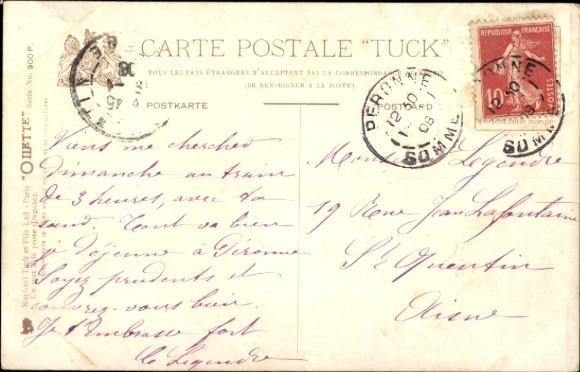 CARTE POSTALE "TUCK"
TOUS LES PAYS ÉTRANGERS N'ACCEPTENT PAS LA CORRESPONDANCE
(SE RENSEIGNER A LA POSTE)
POSTKARTE
POSTCARD
RÉPUBLIQUE FRANÇAISE
10
POSTES
PERONNE
12 50
08
SOMME
PERONNE
SOMME
Viens me chercher
dimanche au tram
de 3 heures, avec ta
Tout va bien
je déjeune à Péronne
Soyez prudents et
couvrez-vous bien
Je t'embrasse fort
Legendre
Monsieur Legendre
19 Rue Jean Lafontaine
St Quentin
Aisne
Raphael Tuck et Fils Ltd - Paris
"OILETTE" Serie No. 900 P.